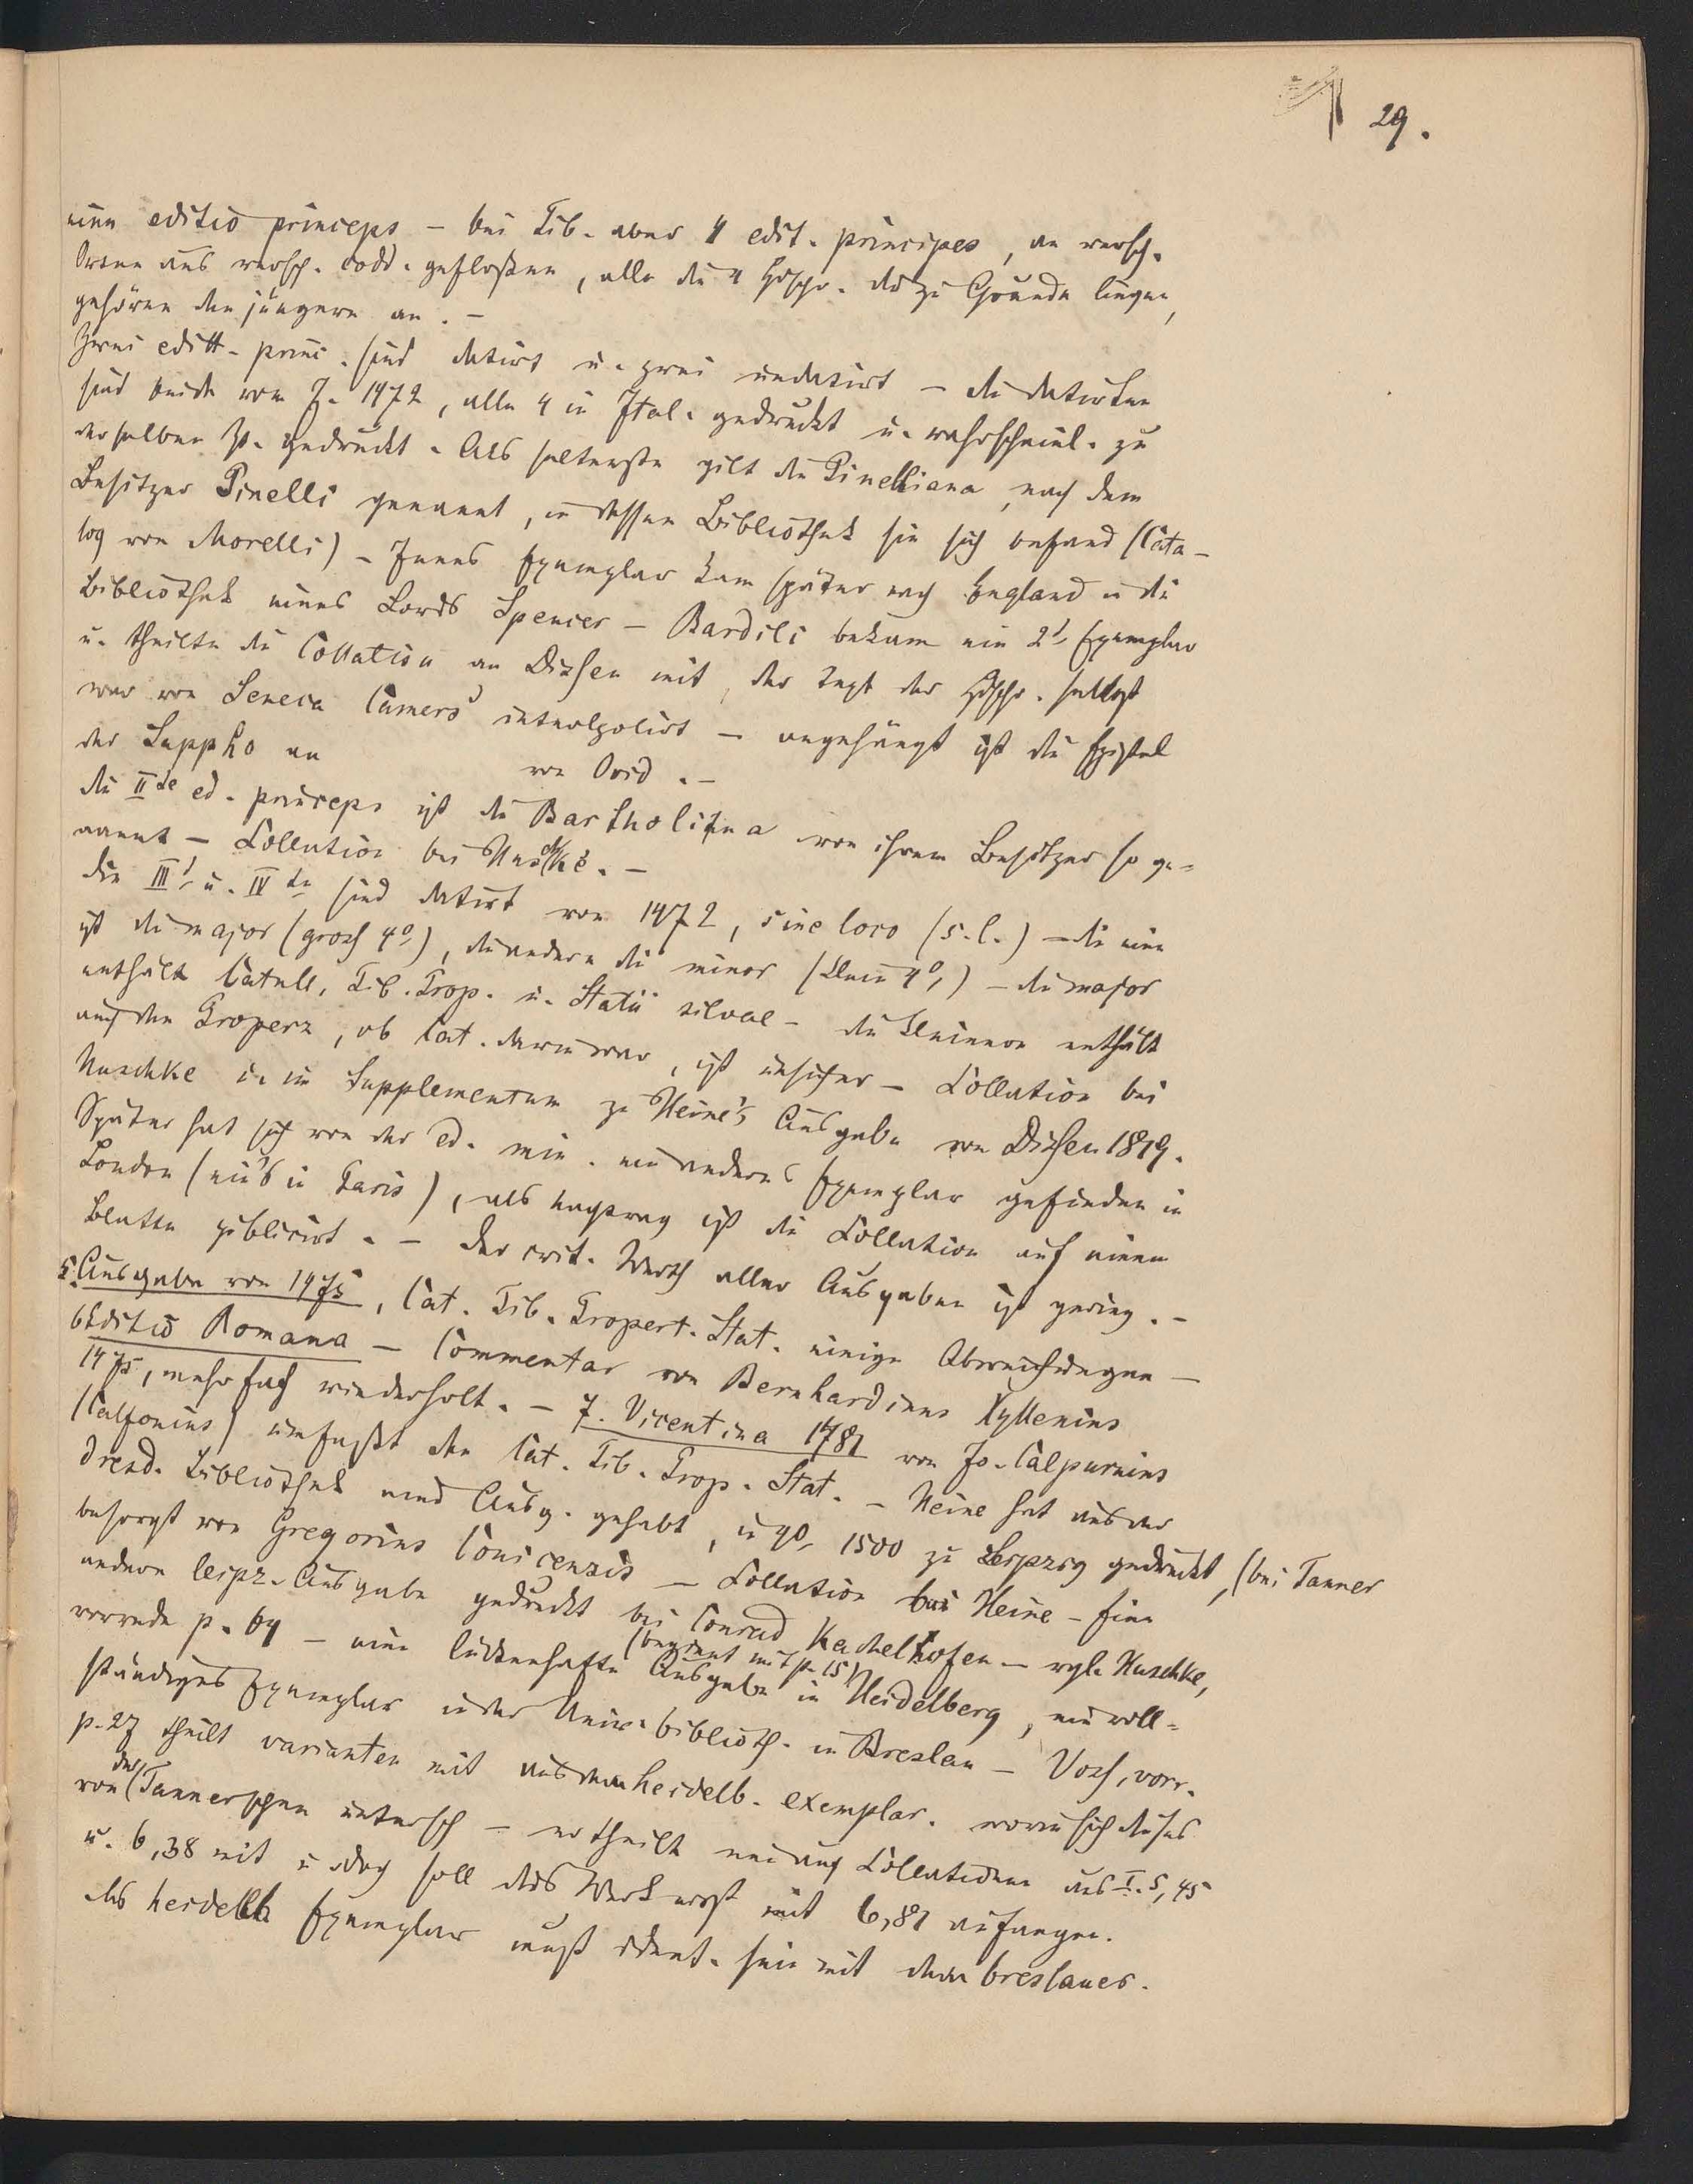 29.
eine editio princeps – bei Tib. aber 4 edit. principes, an versch.
Orten aus versch. codd. geflossen, alle die 4 Hdschr. die zu Grunde liegen,
gehören den jüngern an. –
Zwei editt. princ. sind datirt u. zwei undatirt – die datirten
sind beide vom J. 1472, alle 4 in Ital. gedruckt u. wahrscheinl. zu
derselben Zt. gedruckt. Als seltenste gilt die Pinelliana, nach dem
Besitzer Pinelli genannt, in dessen Bibliothek sie sich befand (Cata-
log von Morelli) – Jenes Exemplar kam später nach England in die
Bibliothek eines Lords Spencer – Bardili bekam ein 2t. Exemplar
u. theilte die Collation an Dissen mit, der Text der Hdschr. selbst
war von Seneca Camers interpolirt – angehängt ist die Epistel
der Sappho an von Ovid. –
die IIte ed. princeps ist die Bartholina von ihrem Besitzer so ge-
nannt – Collation bei Huschke. –
die IIIt. u. IVte sind datirt von 1472, sine loco (s. l.) – die eine
ist die major (gross 4º), die andere die minor (klein 4º,) – die major
enthält Catull, Tib. Prop. u. Statii silvae – die kleinere enthält
auch den Properz, ob Cat. darin war, ist unsicher – Collation bei
Huschke u. im Supplementum zu Heine's Ausgabe von Dissen 1819.
Später hat sich von der ed. min. ein anderes Exemplar gefunden in
London (eins in Paris), als Nachtrag ist die Collation auf einem
Blatte publicirt. – der crit. Werth aller Ausgaben ist gering. –
5. Ausgabe von 1475, Cat. Tib. Propert. Stat. einige Abweichungen –
6 Editio Romana – Commentar von Bernhardinus Kyllenius
1475, mehrfach wiederholt. – 7. Vicentina 1481 von Jo. Calpurnius
(Calfonius) umfasst den Cat. Tib. Prop. Stat. – Heine hat aus der
Dresd. Bibliothek eine Ausg. gehabt, in 4º, 1500 zu Leipzig gedruckt, (bei Tanner
besorgt von Gregorius Conicensis – Collation bei Heine – Eine
andere leipz. Ausgabe gedruckt bei Conrad Kachelhofen – vgl. Huschke,
vorrede p. 64 – eine lückenhafte (beginnt mit p. 15) Ausgabe in Heidelberg, ein voll-
ständiges Exemplar in der Univ. biblioth. in Breslau – Voss, vorr.
p. 27 theilt varianten mit aus dem heidelb. exemplar. worin sich dieses
von der Tannerschen untersch – er theilt nun auch Collationen aus I. 5, 45
u. 6,38 mit u. doch soll das Werk erst mit 6,81 anfangen.
das heidelb Exemplar muss ident. sein mit dem breslauer.